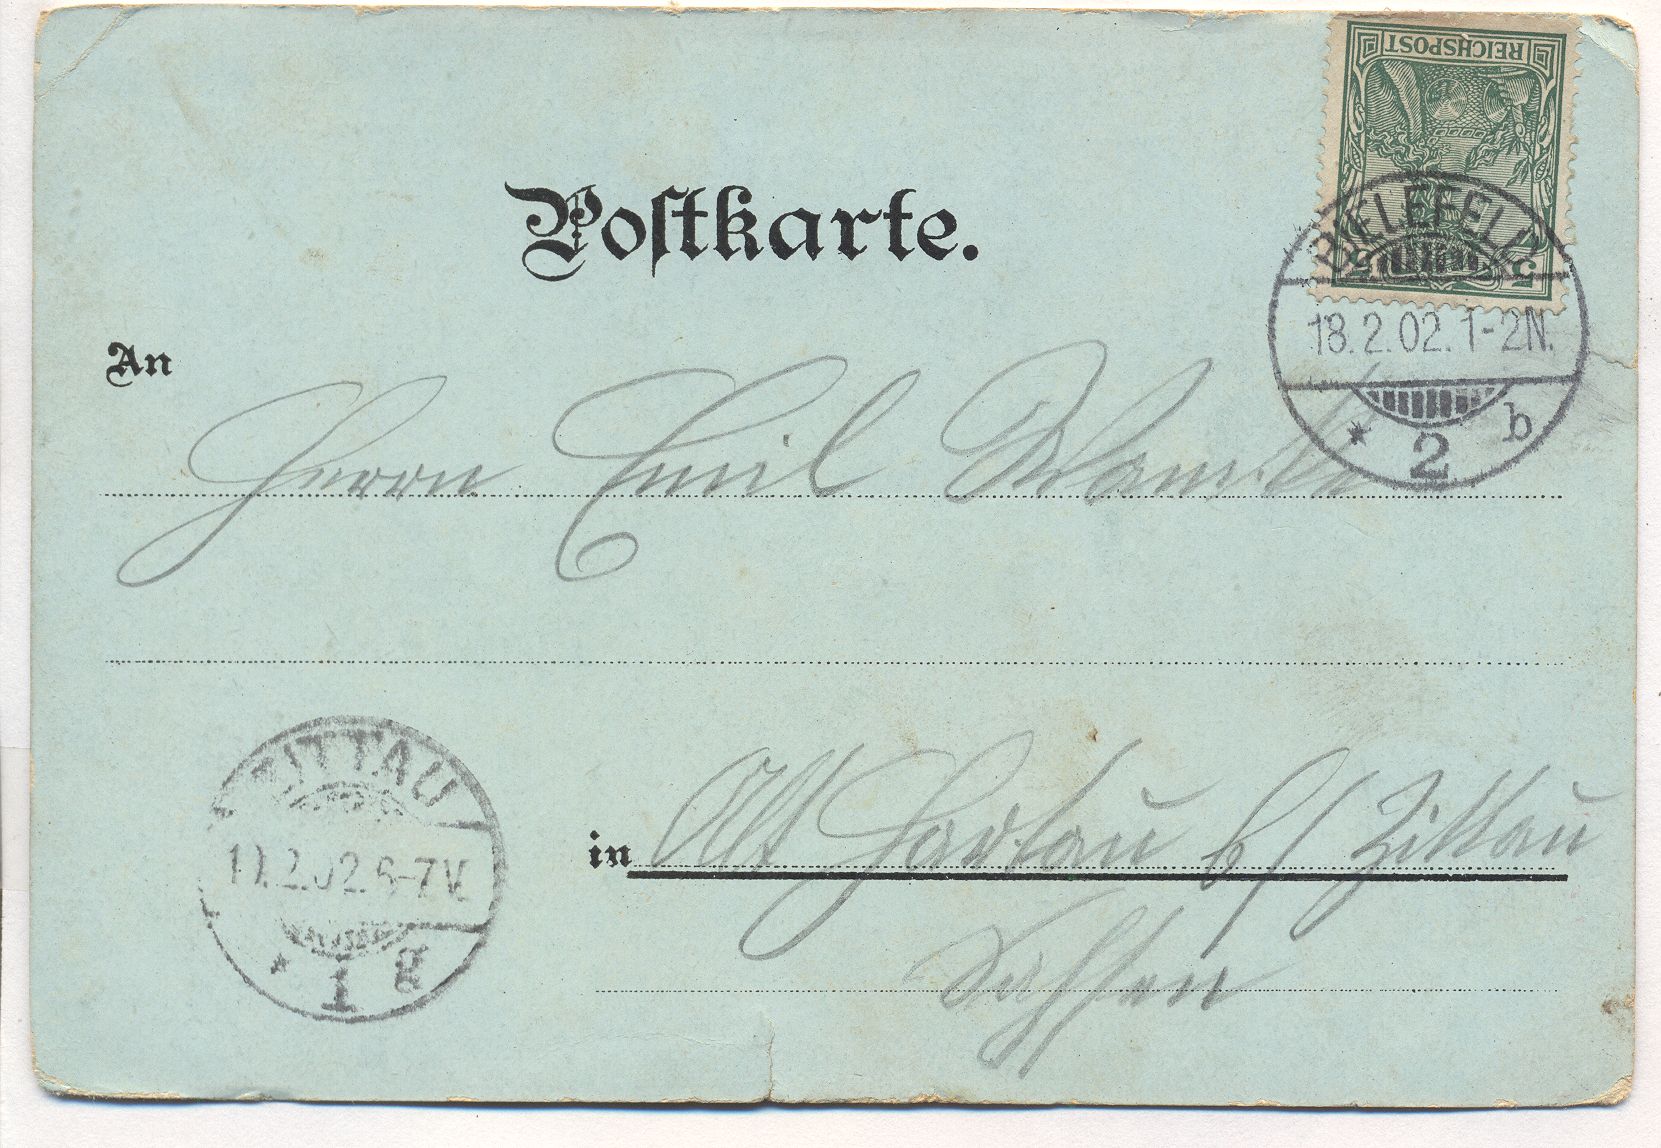 REICHSPOST
5 5
Postkarte.
BIELEFELD
18.2.02.1-2N.
* 2 b
An
Herrn Emil
ZITTAU
2.02.6-7V.
* 1 g
in Alt Hartau b/ Zittau
Sachsen